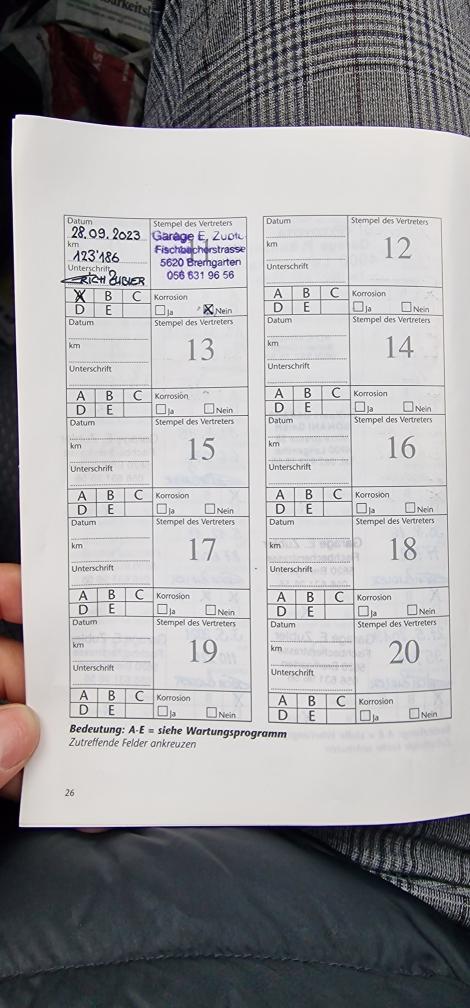 Datum
Stempel des Vertreters
28.09.2023
Garage E.
km
Fischbacherstrasse
123'186
5620 Bremgarten
Unterschrift
056 631 96 56
ERICH ZUBLER
X B C
Korrosion
D E
Ja X Nein
Datum
Stempel des Vertreters
km
12
Unterschrift
A B C
Korrosion
D E
Ja Nein
Datum
Stempel des Vertreters
km
13
Unterschrift
A B C
Korrosion
D E
Ja Nein
Datum
Stempel des Vertreters
km
14
Unterschrift
A B C
Korrosion
D E
Ja Nein
Datum
Stempel des Vertreters
km
15
Unterschrift
A B C
Korrosion
D E
Ja Nein
Datum
Stempel des Vertreters
km
16
Unterschrift
A B C
Korrosion
D E
Ja Nein
Datum
Stempel des Vertreters
km
17
Unterschrift
A B C
Korrosion
D E
Ja Nein
Datum
Stempel des Vertreters
km
18
Unterschrift
A B C
Korrosion
D E
Ja Nein
Datum
Stempel des Vertreters
km
19
Unterschrift
A B C
Korrosion
D E
Ja Nein
Datum
Stempel des Vertreters
km
20
Unterschrift
A B C
Korrosion
D E
Ja Nein
Bedeutung: A-E = siehe Wartungsprogramm
Zutreffende Felder ankreuzen
26